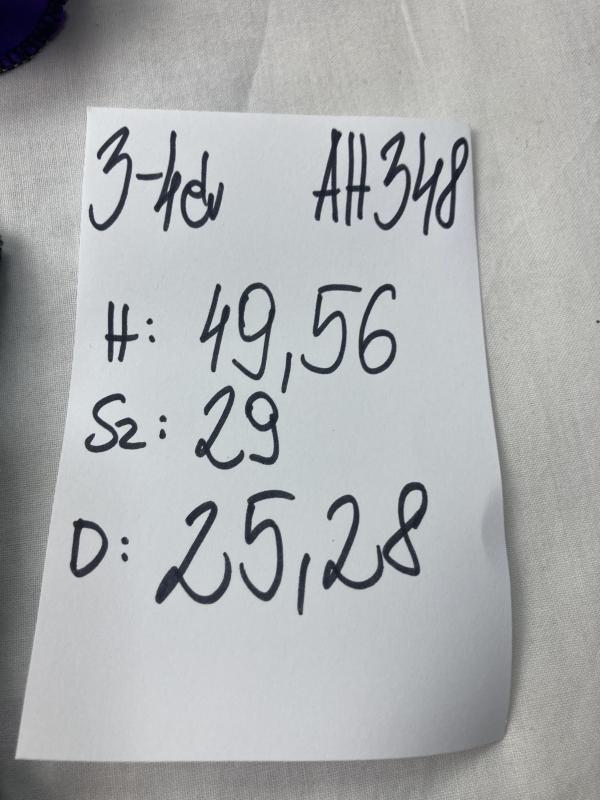 3-4év AH348
H: 49,56
Sz: 29
D: 25,28